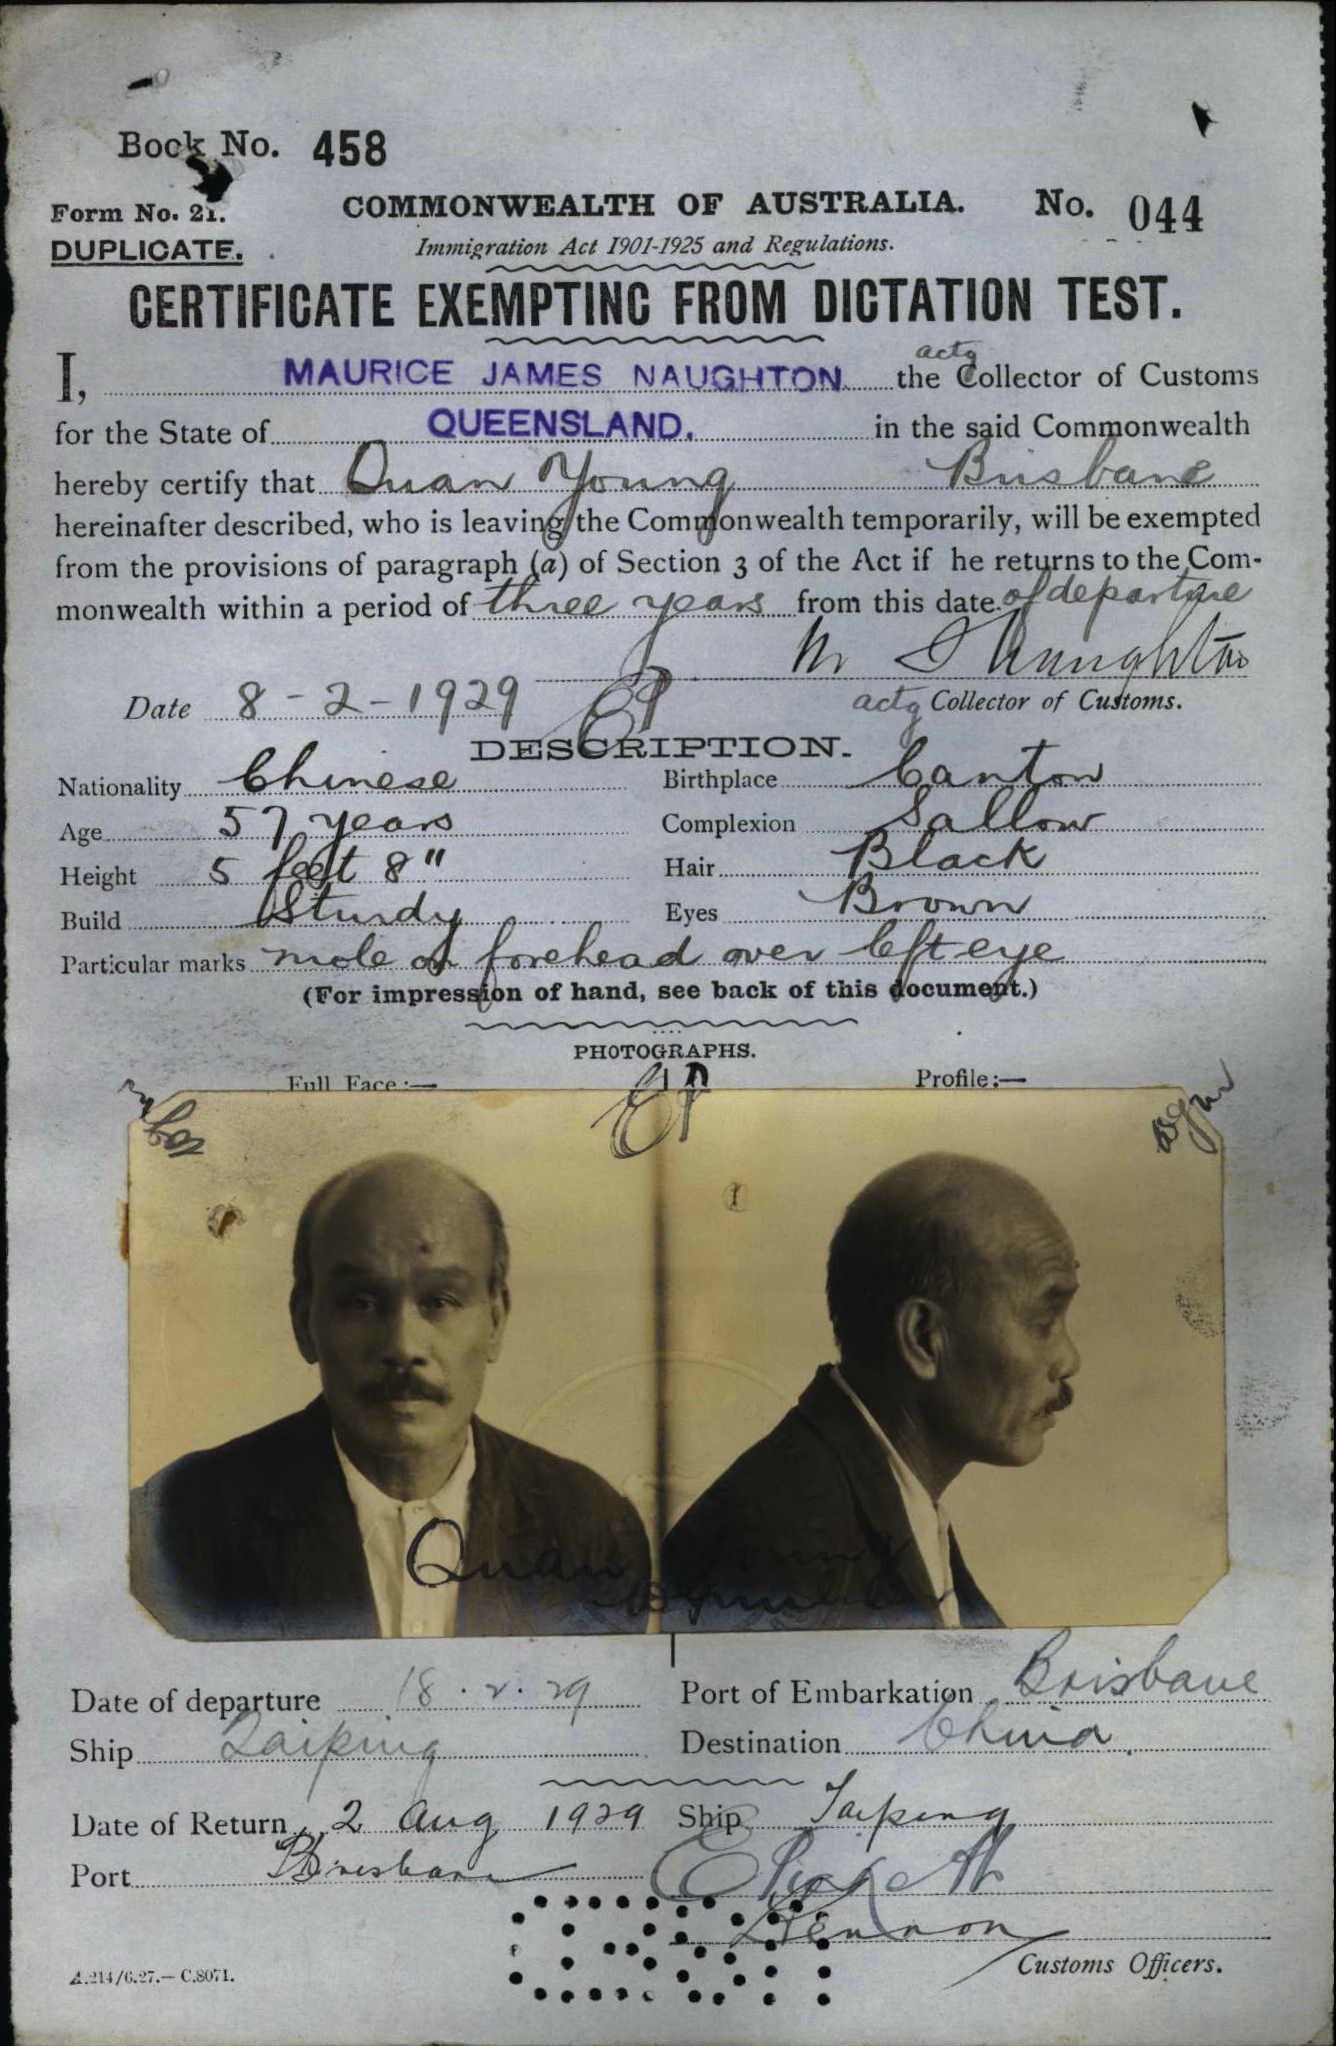 Book No. 458
Form No. 21. COMMONWEALTH OF AUSTRALIA. No. 044
DUPLICATE. Immigration Act 1901-1925 and Regulations.
CERTIFICATE EXEMPTING FROM DICTATION TEST.
I, MAURICE JAMES NAUGHTON the actg Collector of Customs
for the State of QUEENSLAND. in the said Commonwealth
hereby certify that Quan Young Brisbane
hereinafter described, who is leaving the Commonwealth temporarily, will be exempted
from the provisions of paragraph (a) of Section 3 of the Act if he returns to the Com-
monwealth within a period of three years from this date of departure
M J Naughton
Date 8-2-1929 EP actg Collector of Customs.
DESCRIPTION.
Nationality Chinese Birthplace Canton
Age 57 years Complexion Sallow
Height 5 feet 8" Hair Black
Build Sturdy Eyes Brown
Particular marks mole on forehead over left eye
(For impression of hand, see back of this document.)
PHOTOGRAPHS.
Full Face:— Profile:—
EP
Quan Young
Date of departure 18.2.29 Port of Embarkation Brisbane
Ship Taiping Destination China.
Date of Return 2 Aug 1929 Ship Taiping
Port Brisbane
Customs Officers.
A.214/6.27.—C.8071.